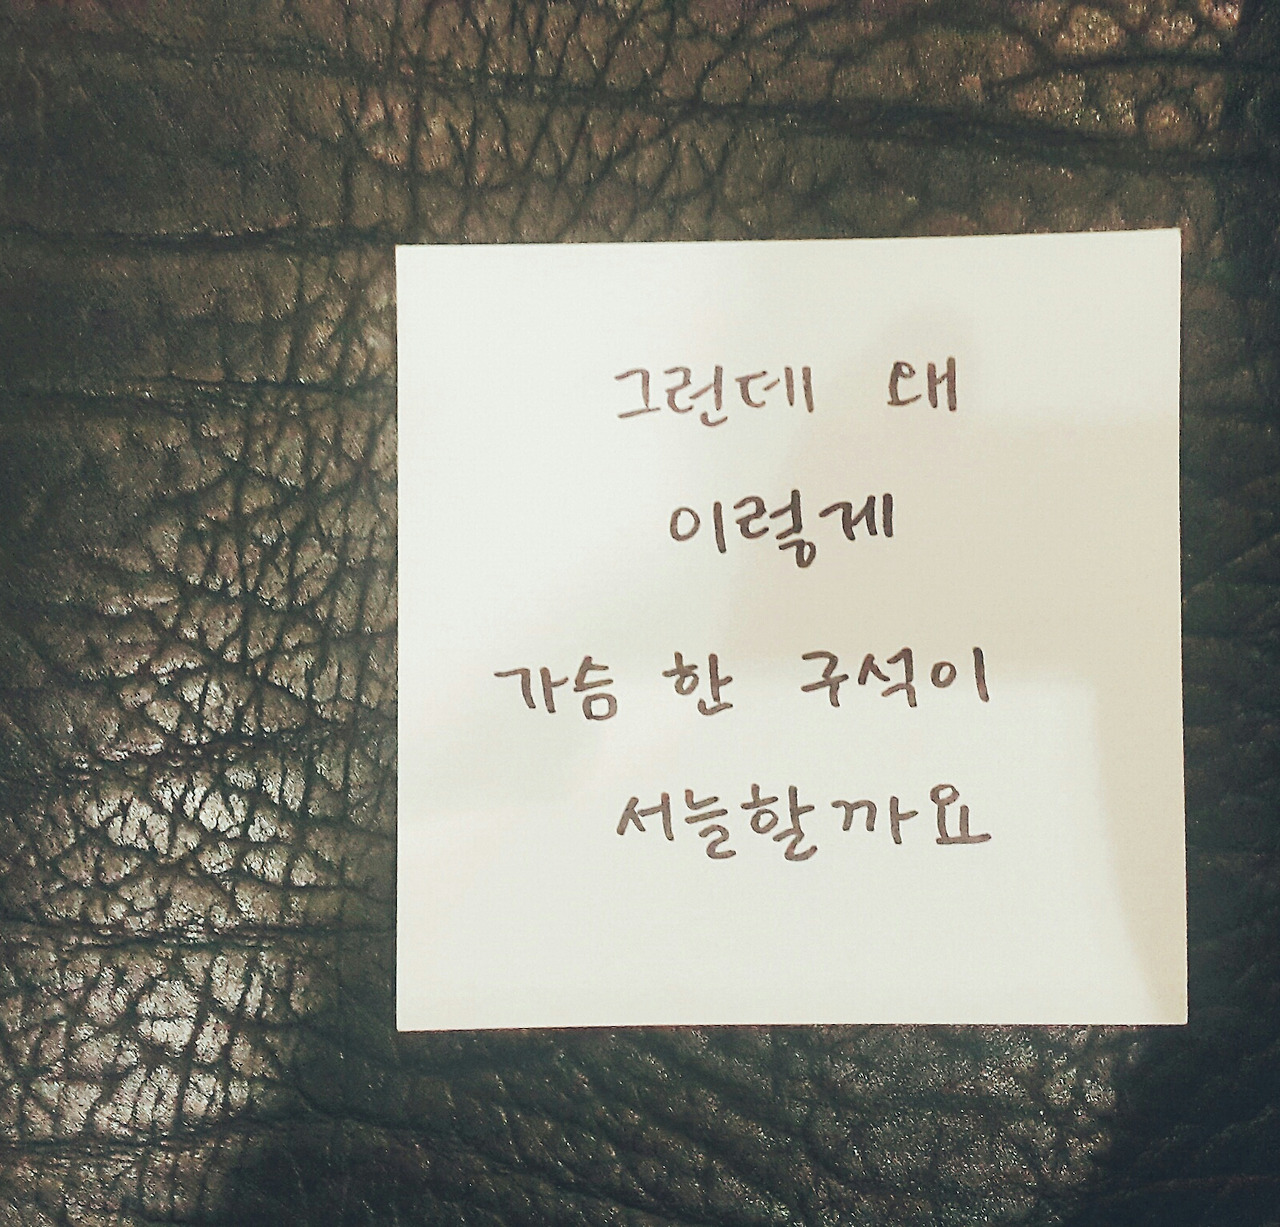 그런데 왜
이렇게
가슴 한 구석이
서늘할까요